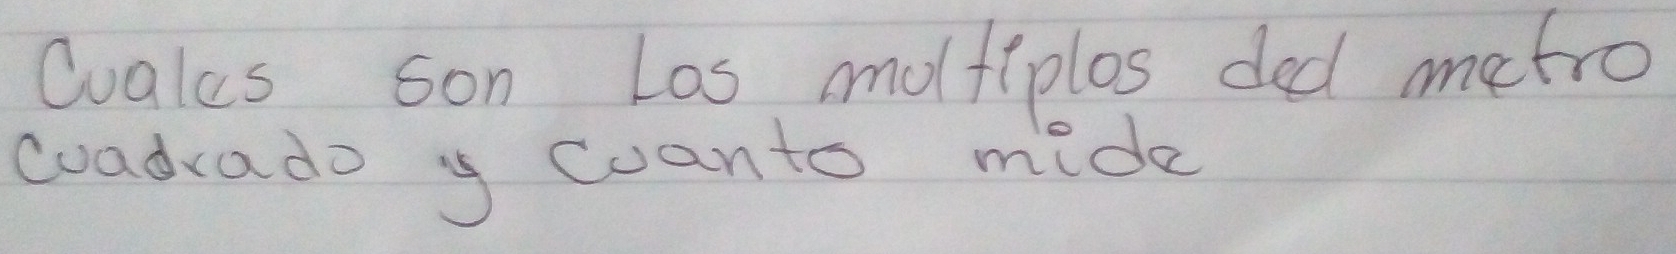 Cuales son Los multiplos del metro
cuadrado y cuanto mide